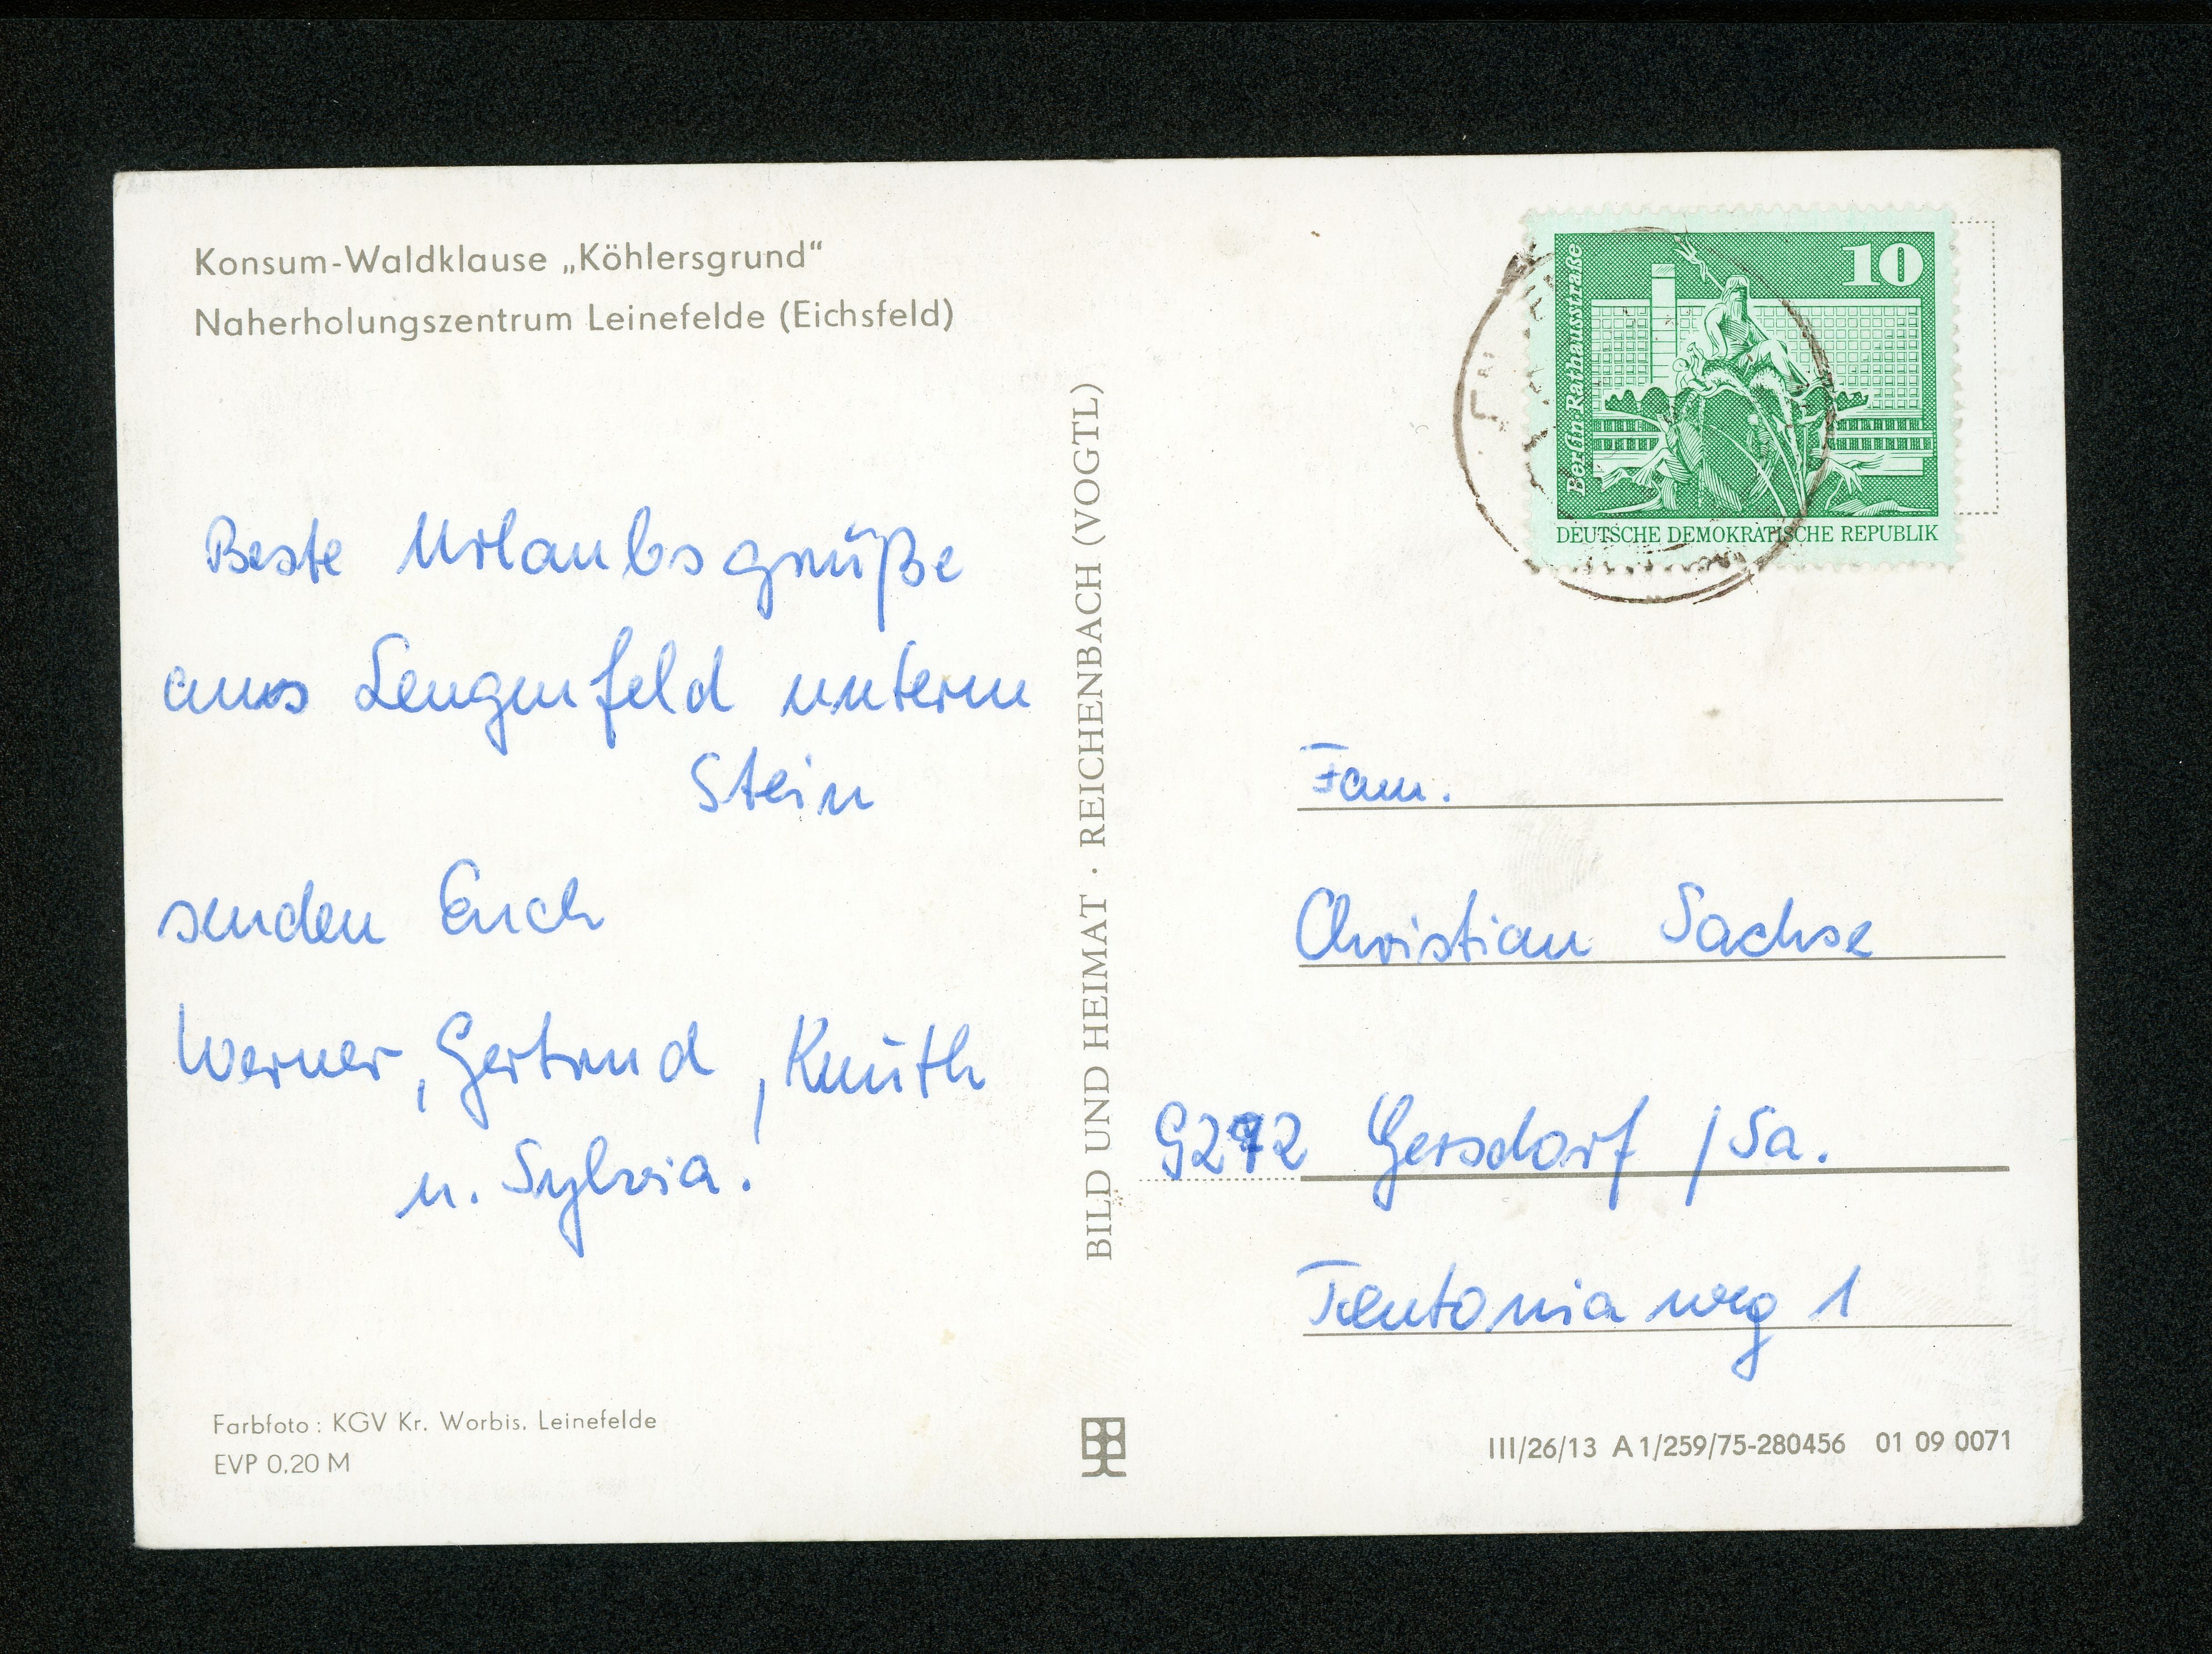 Konsum-Waldklause „Köhlersgrund“
Naherholungszentrum Leinefelde (Eichsfeld)
Beste Urlaubsgrüße
aus Lengenfeld unterm
Stein
senden Euch
Werner, Gertrud, Knuth
u. Sylvia!
Farbfoto: KGV Kr. Worbis, Leinefelde
EVP 0,20 M
BILD UND HEIMAT · REICHENBACH (VOGTL)
10
Berlin-Rathausstraße
DEUTSCHE DEMOKRATISCHE REPUBLIK
Fam.
Christian Sachse
9272 Gersdorf / Sa.
Teutoniaweg 1
III/26/13 A 1/259/75-280456 01 09 0071